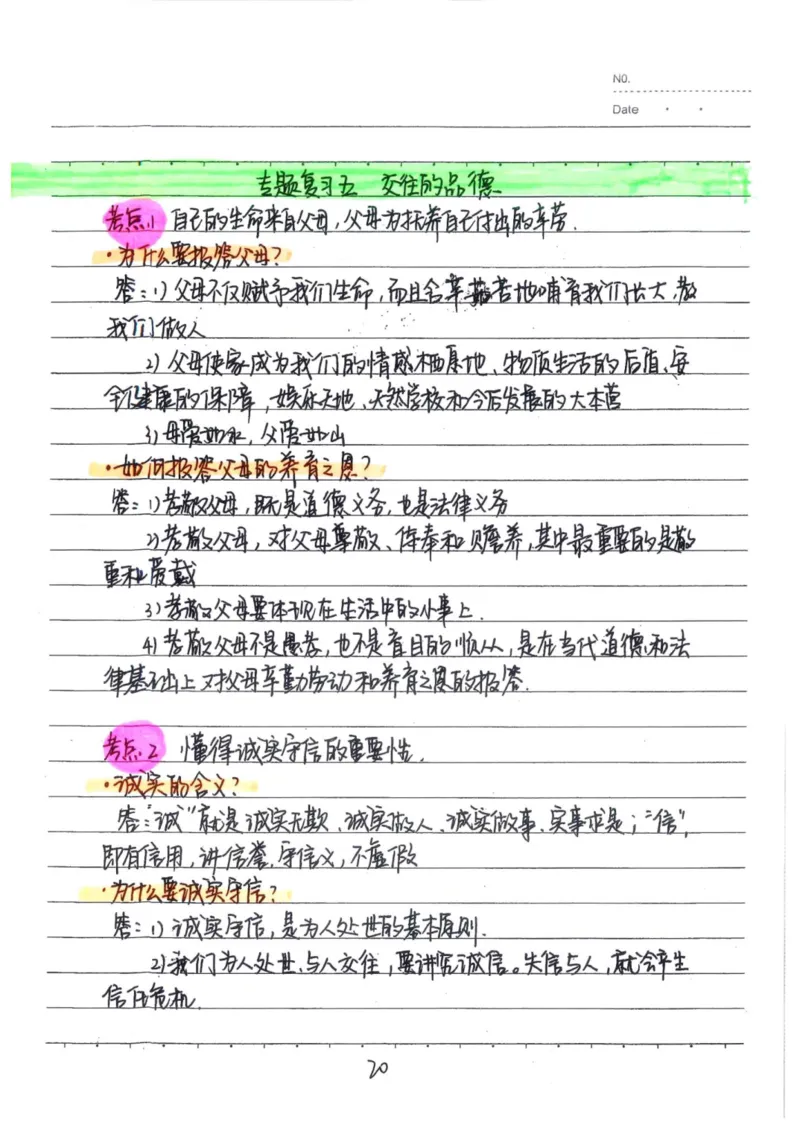 NO.
Date
专题复习五 交往的品德
考点1 自己的生命来自父母,父母为抚养自己付出的辛劳.
·为什么要报答父母?
答:1)父母不仅赋予我们生命,而且含辛茹苦地哺育我们长大,教
我们做人
2)父母使家成为我们的情感栖息地、物质生活的后盾、安
全健康的保障,娱乐天地、天然学校和今后发展的大本营
3)母爱如水,父爱如山
·如何报答父母的养育之恩?
答:1)孝敬父母,既是道德义务,也是法律义务
2)孝敬父母,对父母尊敬、侍奉和赡养,其中最重要的是敬
重和爱戴
3)孝敬父母要体现在生活中的小事上.
4)孝敬父母不是愚孝,也不是盲目的顺从,是在当代道德和法
律基础上对父母辛勤劳动和养育之恩的报答.
考点2 懂得诚实守信的重要性.
·诚实的含义?
答:"诚"就是诚实无欺、诚实做人、诚实做事、实事求是;"信",
即有信用,讲信誉,守信义,不虚假
·为什么要诚实守信?
答:1)诚实守信,是为人处世的基本原则.
2)我们为人处世、与人交往,要讲究诚信。失信与人,就会产生
信任危机.
20